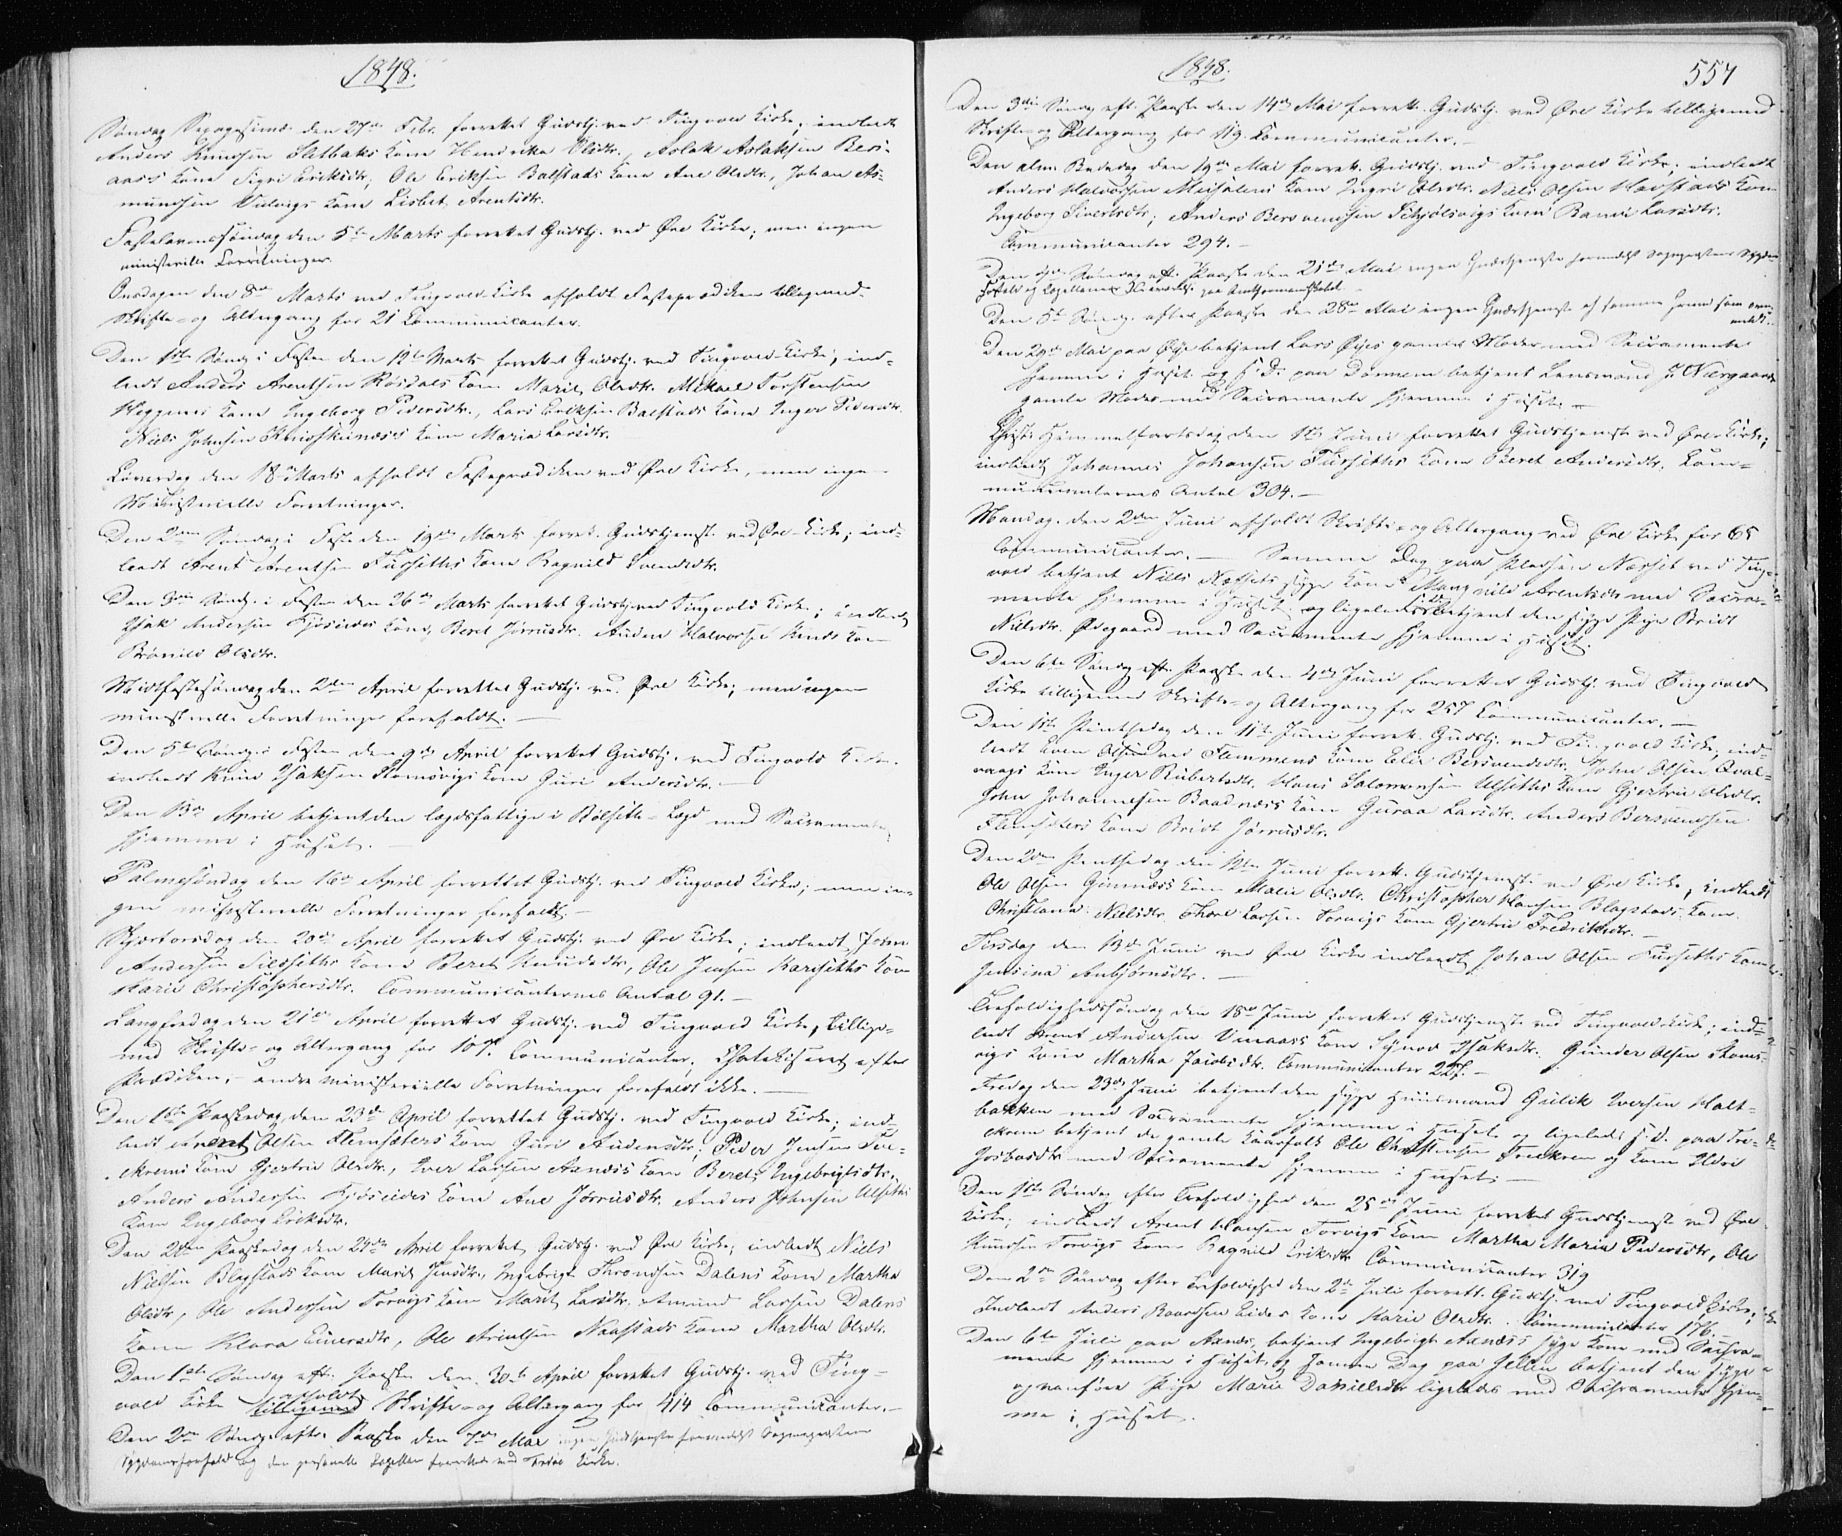 1848.
Søndag Sexagesima den 27de Febr. forrettet Gudstj. ved Tingvold Kirke; indledt
Anders Knudsen Sletbaks Kone Hendrikke Olsdtr., Aslak Aslaksen Beri-
aass Kone Sigri Eriksdtr., Ole Eriksen Balstads Kone Ane Olsdtr., Johan As-
mundsen Kone Lisbet Arentsdtr.
Fastelavenssøndag den 5te Marts forrettet Gudstj. ved Øre Kirke; men ingen
ministerielle Forretninger.
Onsdagen den 8de Marts ved Tingvold Kirke afholdt Fasteprædiken tilligemed
Skrifte- og Altergang for 21 Communicanter.
Den 1ste Sønd. i Fasten den 12te Marts forrettet Gudstj. ved Tingvold Kirke; ind-
ledt Anders Arentsen Rosdals Kone Marit Olsdtr. Mikael Torstensen
Heggems Kone Ingeborg Pedersdtr., Lars Eriksen Balstads Kone Inger Pedersdtr.
Niels Johnsen Kone Maria Larsdtr.
Løverdag den 18de Marts afholdt Fasteprædiken ved Øre Kirke, men ingen
Ministerielle Forretninger.
Den 2den Søndag i Faste den 19de Marts forret. Gudstjenest. ved Øre Kirke; ind-
ledt Arent Arentsen Furseths Kone Ragnild Svendsdtr.
Den 3die Sønd. i Fasten den 26de Marts forrettet Gudstj. ved Tingvold Kirke; indledt
Isak Andersen Kjøseides Kone, Beret Jørnsdtr. Anders Halvorsen Kone
Brønild Olsdtr.
Midfastesøndag den 2den April forrettet Gudstj. ved Øre Kirke; men ingen
ministerielle Forretninger forefaldt. —
Den 5te Sønd. i Fasten den 9de April forrettet Gudstj. ved Tingvold Kirke.
indledt Knud Isaksen Kone Guri Andersdtr. —
Den 13de April betjent den lægdsfattige i Bølseth-Lægd med Sacramente
hjemme i Huset. —
Palmesøndag den 16de April forrettet Gudstj. ved Tingvold Kirke; men in-
gen ministerielle Forretninger forefaldt. —
Skjærtorsdag den 20de April forrettet Gudstj. ved Øre Kirke; indledt John
Andersen Kone Beret Knudsdtr., Ole Jensen Karlseths Kone
Marie Christophersdtr. Communicanternes Antal 91. —
Langfredag den 21de April forrettet Gudstj. ved Tingvold Kirke, tillige-
med Skrifte- og Altergang for 107 Communicanter, Chatekiseret efter
Prædiken, — andre ministerielle Forretninger forefaldt ikke. —
Den 1ste Paaskedag den 23de April forrettet Gudstj. ved Tingvold Kirke; ind-
ledt Olsen Flemsæters Kone Guri Andersdtr., Peder Jensen Tre-
ekrems Kone Gjertrud Olsdtr., Iver Larsen Aandes Kone Beret Ingebrigtsdtr.,
Anders Andersen Kjøseides Kone Ane Jørnsdtr. Anders Johnsen Ulseths
Kone Ingeborg Eriksdtr.
Den 2den Paaskedag den 24de April forrettet Gudstj. ved Øre Kirke; indledt Niels
Nielsen Blegstads Kone Marit Jensdtr., Ingebrigt Throndsen Dalens Kone Martha
Olsdtr., Ole Andersen Torvigs Kone Marit Larsdtr. Amund Larsen Dalens
Kone Klara Einersdtr., Ole Arentsen Naastads Kone Martha Olsdtr.
Den 1ste Søndag eft. Paaske den 30te April forrettet Gudstj. ved Ting-
vold Kirke tilligemed afholdt Skrifte- og Altergang for 414 Communicanter. —
Den 2den Sønd. efter Paaske den 7de Mai ingen Gudstjeneste formedelst Sognepræstens
Sygdomsforfald og den personelle Capellan forrettede ved Kirke.
1848.
557
Den 3die Sønd. eft. Paaske den 14de Mai forrett. Gudstj. ved Øre Kirke tilligemed
Skrifte- og Altergang for 119 Communicanter. —
Den alm. Bededag den 19de Mai forrett. Gudstj. ved Tingvold Kirke; indledt
Anders Halvorsen Meisalens Kone Ingri Olsdtr. Niels Olsen Havstads Kone
Ingeborg Sivertsdtr.; Anders Bersvendsen Kone Randi Larsdtr.
Communicanter 294. —
Den 4de Søndag eft. Paaske den 21de Mai ingen Gudstjeneste formedelst Sognepræstens Sygdoms-
forfald og Capellanens
Den 5te Sønd. efter Paaske den 28de Mai ingen Gudstjeneste af samme Grund som oven-
meldt.
Den 29de Mai paa Øye betjent Lars Øyes gamle Moder med Sacramente
hjemme i Huset og s. D. paa betjent Lensmand J. Nærgaards
gamle Moder med Sacramente hjemme i Huset. —
Christi Himmelfartsdag den 1ste Juni forrettet Gudstjeneste ved Øre Kirke;
indledt Johannes Johansen Furseths Kone Beret Andersdtr. Com-
municanternes Antal 304. —
Mandag den 2den Juni afholdt Skrifte- og Altergang ved Øre Kirke for 65
Communicanter. — Samme Dag paa Pladsen Næsset ved Ting-
vold betjent Niels Næssets syge Kone Magnild Arentsdtr. med Sacra-
mente hjemme i Huset og ligeledes betjent den syge Pige Bridt
Nielsdtr. Ødegaard med Sacramente hjemme i Huset.
Den 6te Søndag eft. Paaske den 4de Juni forrettet Gudstj. ved Tingvold
Kirke tilligemed Skrifte- og Altergang for 257 Communicanter. —
Den 1ste Pintsedag den 11te Juni forrett. Gudstj. ved Tingvold Kirke; ind-
ledt Olsen Flemmens Kone Bersvendsdtr. John Olsen Qval-
vaags Kone Inger Rubertsdtr. Hans Salomonsen Ulseths Kone Gjertrud Olsdtr.
John Johannesen Baadnæss Kone Guraa Larsdtr. Anders Bersvendsen
Flemsæters Kone Bridt Jørnsdtr.
Den 2den Pintsedag den 12te Juni forrett. Gudstjeneste ved Øre Kirke, indledt
Ole Olsen Gimnæss Kone Malie Olsdtr. Christopher Hansen Blegstads Kone
Christiana Nielsdtr. Thore Larsen Torvigs Kone Gjertrud Fredriksdtr. —
Tirsdag den 13de Juni ved Øre Kirke indledt Johan Olsen Furseths Kone
Jensina Anbjørnsdtr. —
Trefoldighedssøndag den 18de Juni forrettet Gudstjeneste ved Tingvold Kirke; ind-
ledt Arent Andersen Kone Synnøv Isaksdtr. Gunder Olsen
vigs Kone Martha Jacobsdtr. Communicanter 227. —
Fredag den 23de Juni betjent den syge Huusmand Gulik Iversen Holt-
bakken med Sacramente hjemme i Huset og ligeledes s. D. paa Tre-
ekrem betjent de gamle Kaarfolk Ole Christensen Treekrem og Kone Ildri
med Sacramente hjemme i Huset. —
Den 1ste Søndag efter Trefoldighed den 25de Juni forrettet Gudstjeneste ved Øre
Kirke; indledt Arent Hansen Torvigs Kone Martha Maria Pedersdtr., Ole
Knudsen Torvigs Kone Ragnild Eriksdtr. Communicanter 319
Den 2den Søndag efter Trefoldighed den 2de Juli forrett. Gudstj. ved Tingvold Kirke;
Indledt Anders Baardsen Eides Kone Marie Olsdtr. Communicanter 176. —
Den 6te Juli paa Aandes betjent Ingebrigt Aandes syge Kone med Sacra-
mente hjemme i Huset og samme Dag paa betjent den syge
og vanføre Pige Marie Danielsdtr. ligeledes med Sacramente hjem-
me i Huset.